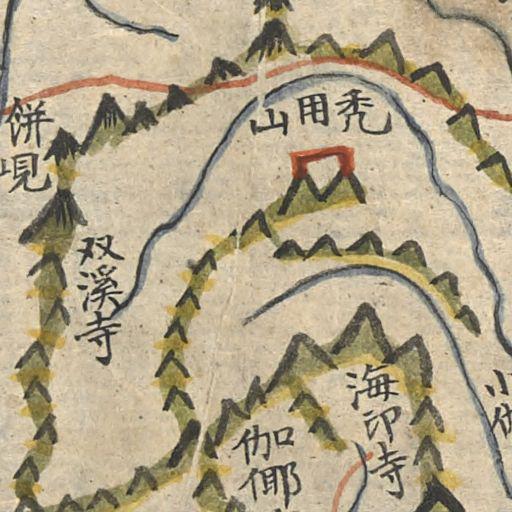 禿用山
餅峴
双溪寺
海印寺
伽倻
小伽